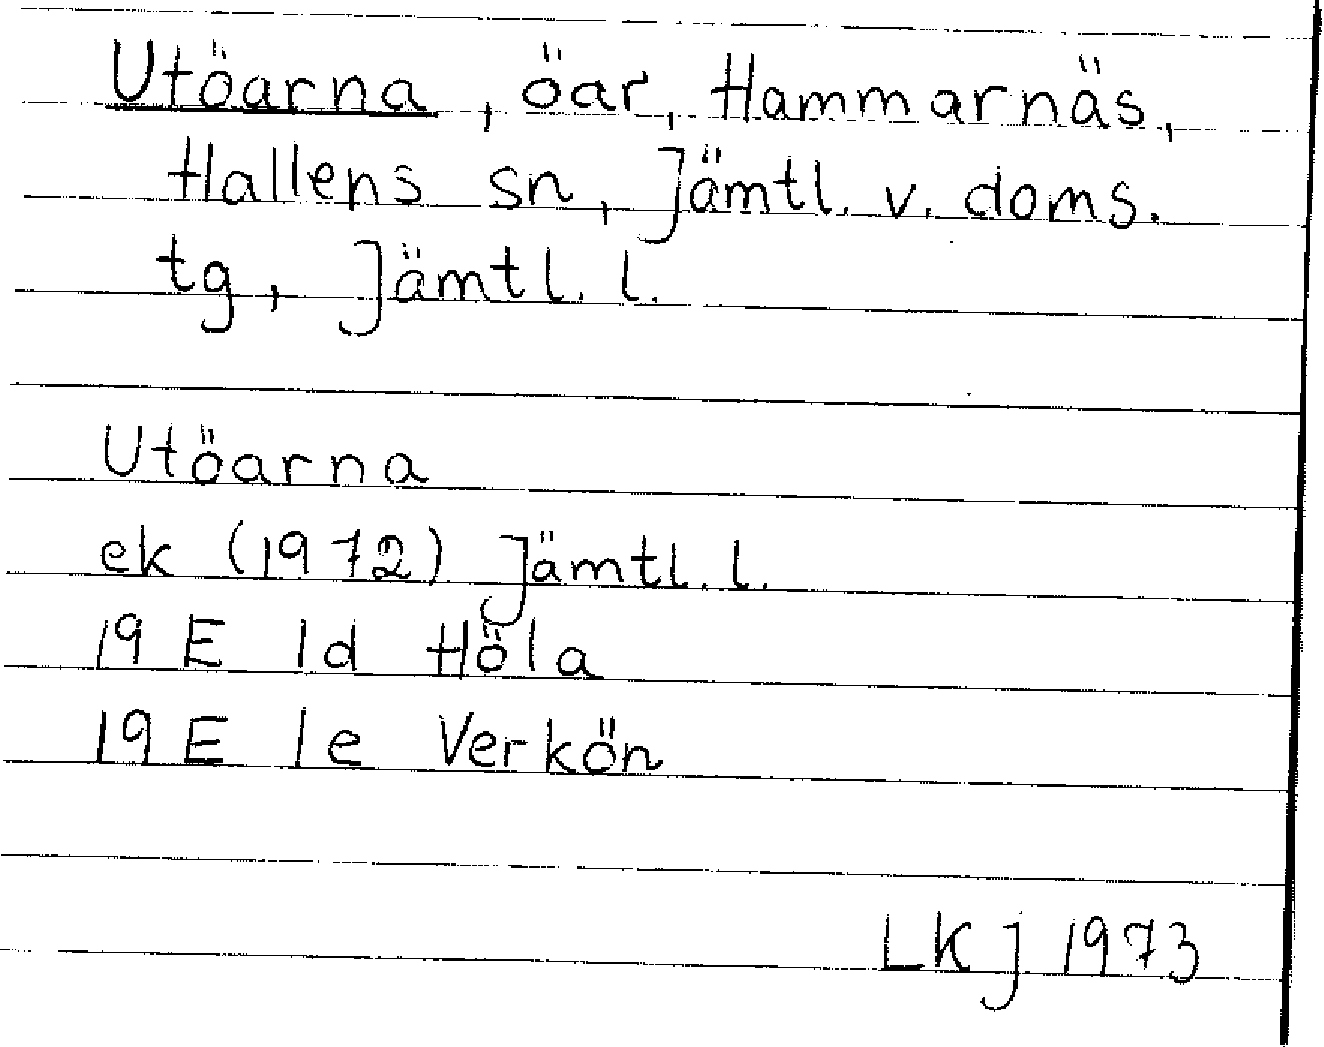 Utöarna, öar, Hammarnäs,
Hallens sn, Jämtl. v. doms.
tg, Jämtl. l.
Utöarna
ek (1972) Jämtl. l.
19 E 1d Höla
19 E 1e Verkön
LKj 1973